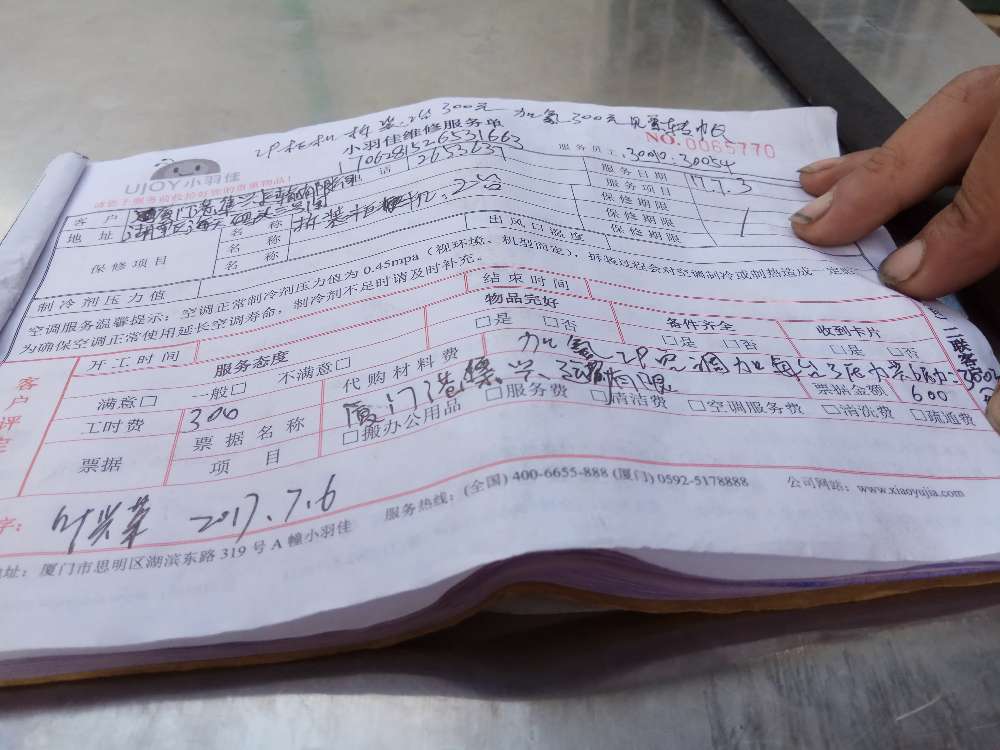 2P柜机 拆装.2台 300元 加氟 300元
小羽佳维修服务单
NO.0065770
UJOY小羽佳
请您于服务前收拾好您的贵重物品!
106281526531663
服务员工: 30010.30054
客户 电话 2653637 服务日期 17.7.3
地址 服务项目
保修项目 名称 拆装柜机.2台 保修期限
名称 出风口温度 保修期限
制冷剂压力值
空调服务温馨提示: 空调正常制冷剂压力值为 0.45mpa (视环境、机型而定), 拆装过程会对空调制冷或制热造成一定
为确保空调正常使用延长空调寿命, 制冷剂不足时请及时补充。
开工时间 结束时间
客户评定 服务态度 物品完好 备件齐全 收到卡片
满意□ 一般□ 不满意□ □是 □否 □是 □否 □是 □否
工时费 300 代购材料费 加氟
票据 票据名称 厦门港集兴运输有限 票据金额 600
项目 □搬办公用品 □服务费 □清洁费 □空调服务费 □清洗费 □疏通费
字: 叶兴荣 2017.7.6
服务热线: (全国) 400-6655-888 (厦门) 0592-5178888 公司网站: www.xiaoyujia.com
地址: 厦门市思明区湖滨东路 319 号 A 幢小羽佳
二联客